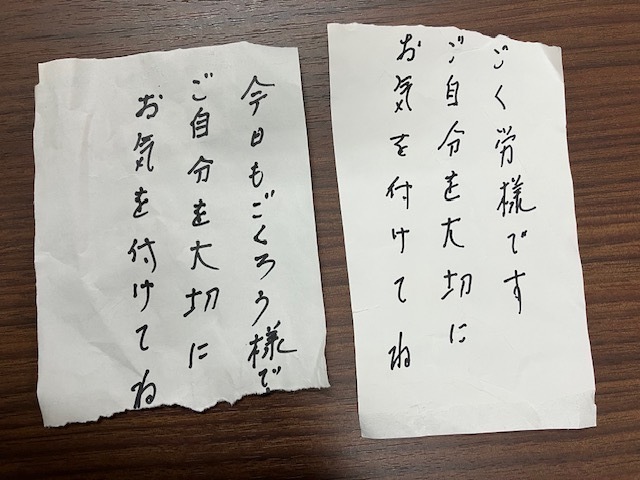 今日もごくろう様で
ご自分を大切に
お気を付けてね
ごく労様です
ご自分を大切に
お気を付けてね